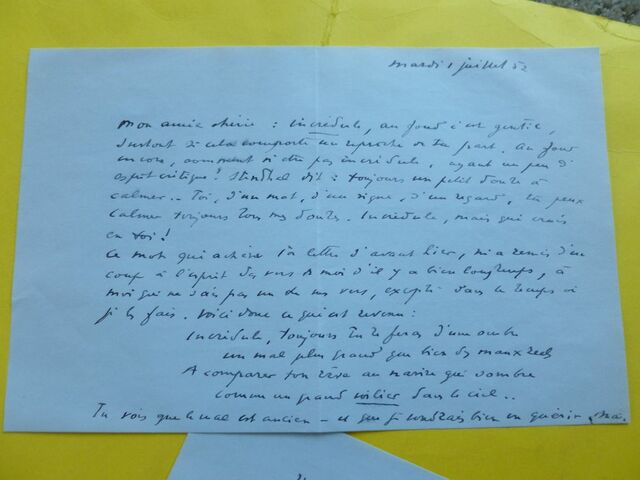 mardi 1 juillet 52
Mon amie chérie : incrédule, au fond c'est gentil,
surtout si cela comporte un reproche de ta part. Au fond
encore, comment ne être pas incrédule, ayant un peu d'
esprit critique ! Stendhal dit : toujours un petit doute à
calmer.. Toi, d'un mot, d'un signe, d'un regard, tu peux
calmer toujours tous mes doutes. Incrédule, mais qui crois
en toi !
Ce mot qui achève ta lettre d'avant hier, m'a remis d'un
coup à l'esprit des vers de moi d'il y a bien longtemps, à
moi qui ne sais pas un de mes vers, excepté dans le temps où
je les fais. Voici donc ce qui est revenu :
Incrédule, toujours tu te feras d'une ombre
un mal plus grand que bien des maux réels
A comparer ton rêve au navire qui sombre
comme un grand voilier dans le ciel..
Tu vois que le mal est ancien – et que je voudrais bien en guérir.